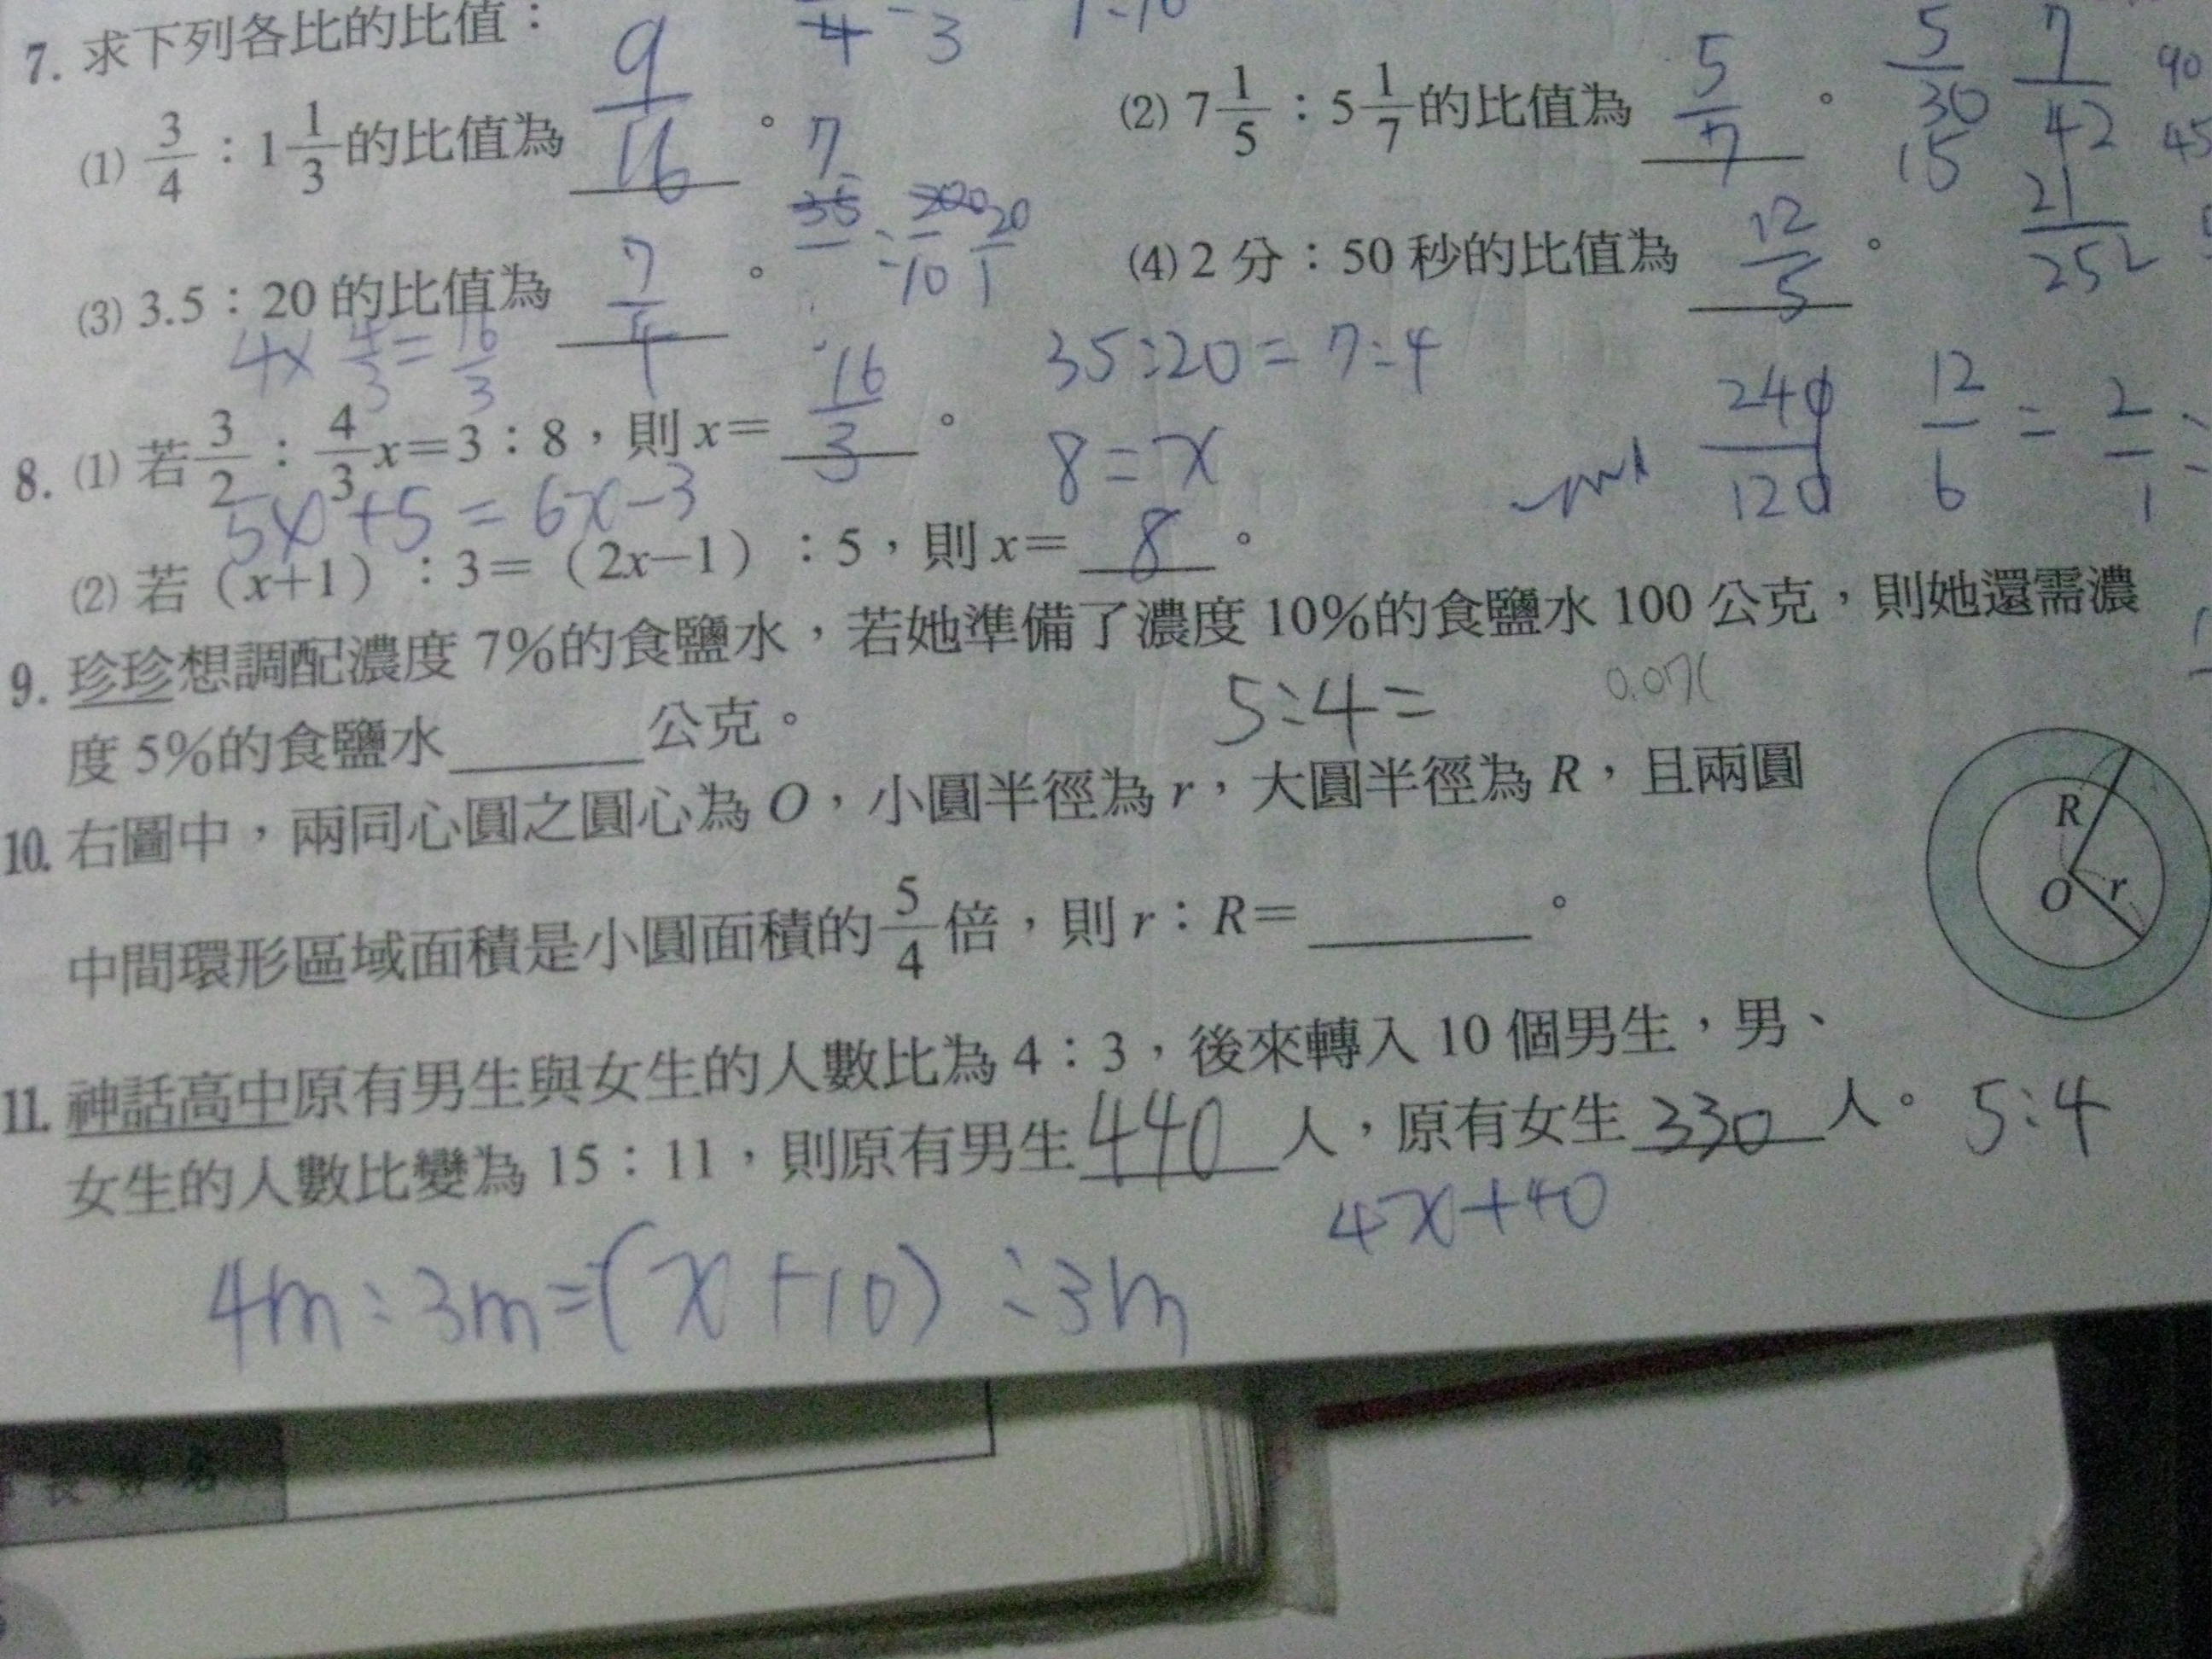 7. 求下列各比的比值：
4 3
(1) 3/4：1 1/3 的比值為 9/16 。
(2) 7 1/5：5 1/7 的比值為 5/7 。
5/30 7/42 90
15 21/252 45
7
35 200 20
10 1
(3) 3.5：20 的比值為 7/4 。
(4) 2 分：50 秒的比值為 12/5 。
4× 4/3 = 16/3
35:20=7:4
240/120 12/6 = 2/1
8. (1) 若 3/2：4/3 x＝3：8，則 x＝ 16/3 。
8=x
5x+5=6x-3
(2) 若（x+1）：3＝（2x−1）：5，則 x＝ 8 。
9. 珍珍想調配濃度 7%的食鹽水，若她準備了濃度 10%的食鹽水 100 公克，則她還需濃
度 5%的食鹽水 公克。
5:4=
10. 右圖中，兩同心圓之圓心為 O，小圓半徑為 r，大圓半徑為 R，且兩圓
中間環形區域面積是小圓面積的 5/4 倍，則 r：R＝ 。
R
O r
11. 神話高中原有男生與女生的人數比為 4：3，後來轉入 10 個男生，男、
女生的人數比變為 15：11，則原有男生 440 人，原有女生 330 人。 5:4
4x+40
4m:3m=(x+10):3m